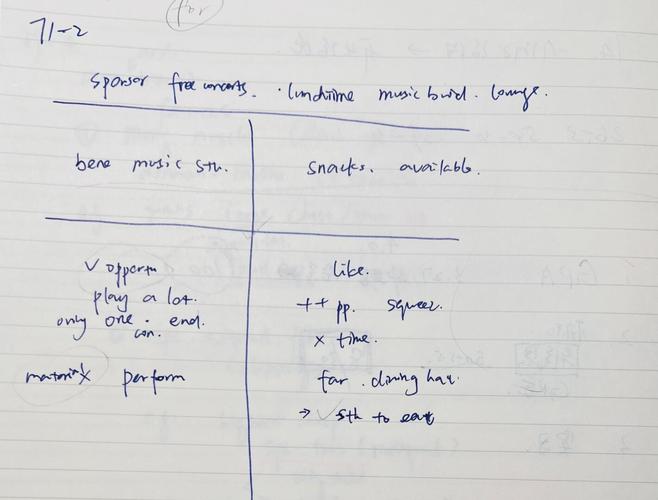 71-2
Sponsor free concerts. · lunchtime music build. lounge.
bene music sth.
snacks. available.
✓ opportu
play a lot.
only one. end.
con.
perform
like.
++ pp. squeez.
x time.
far. dining
→ ✓ sth to eat